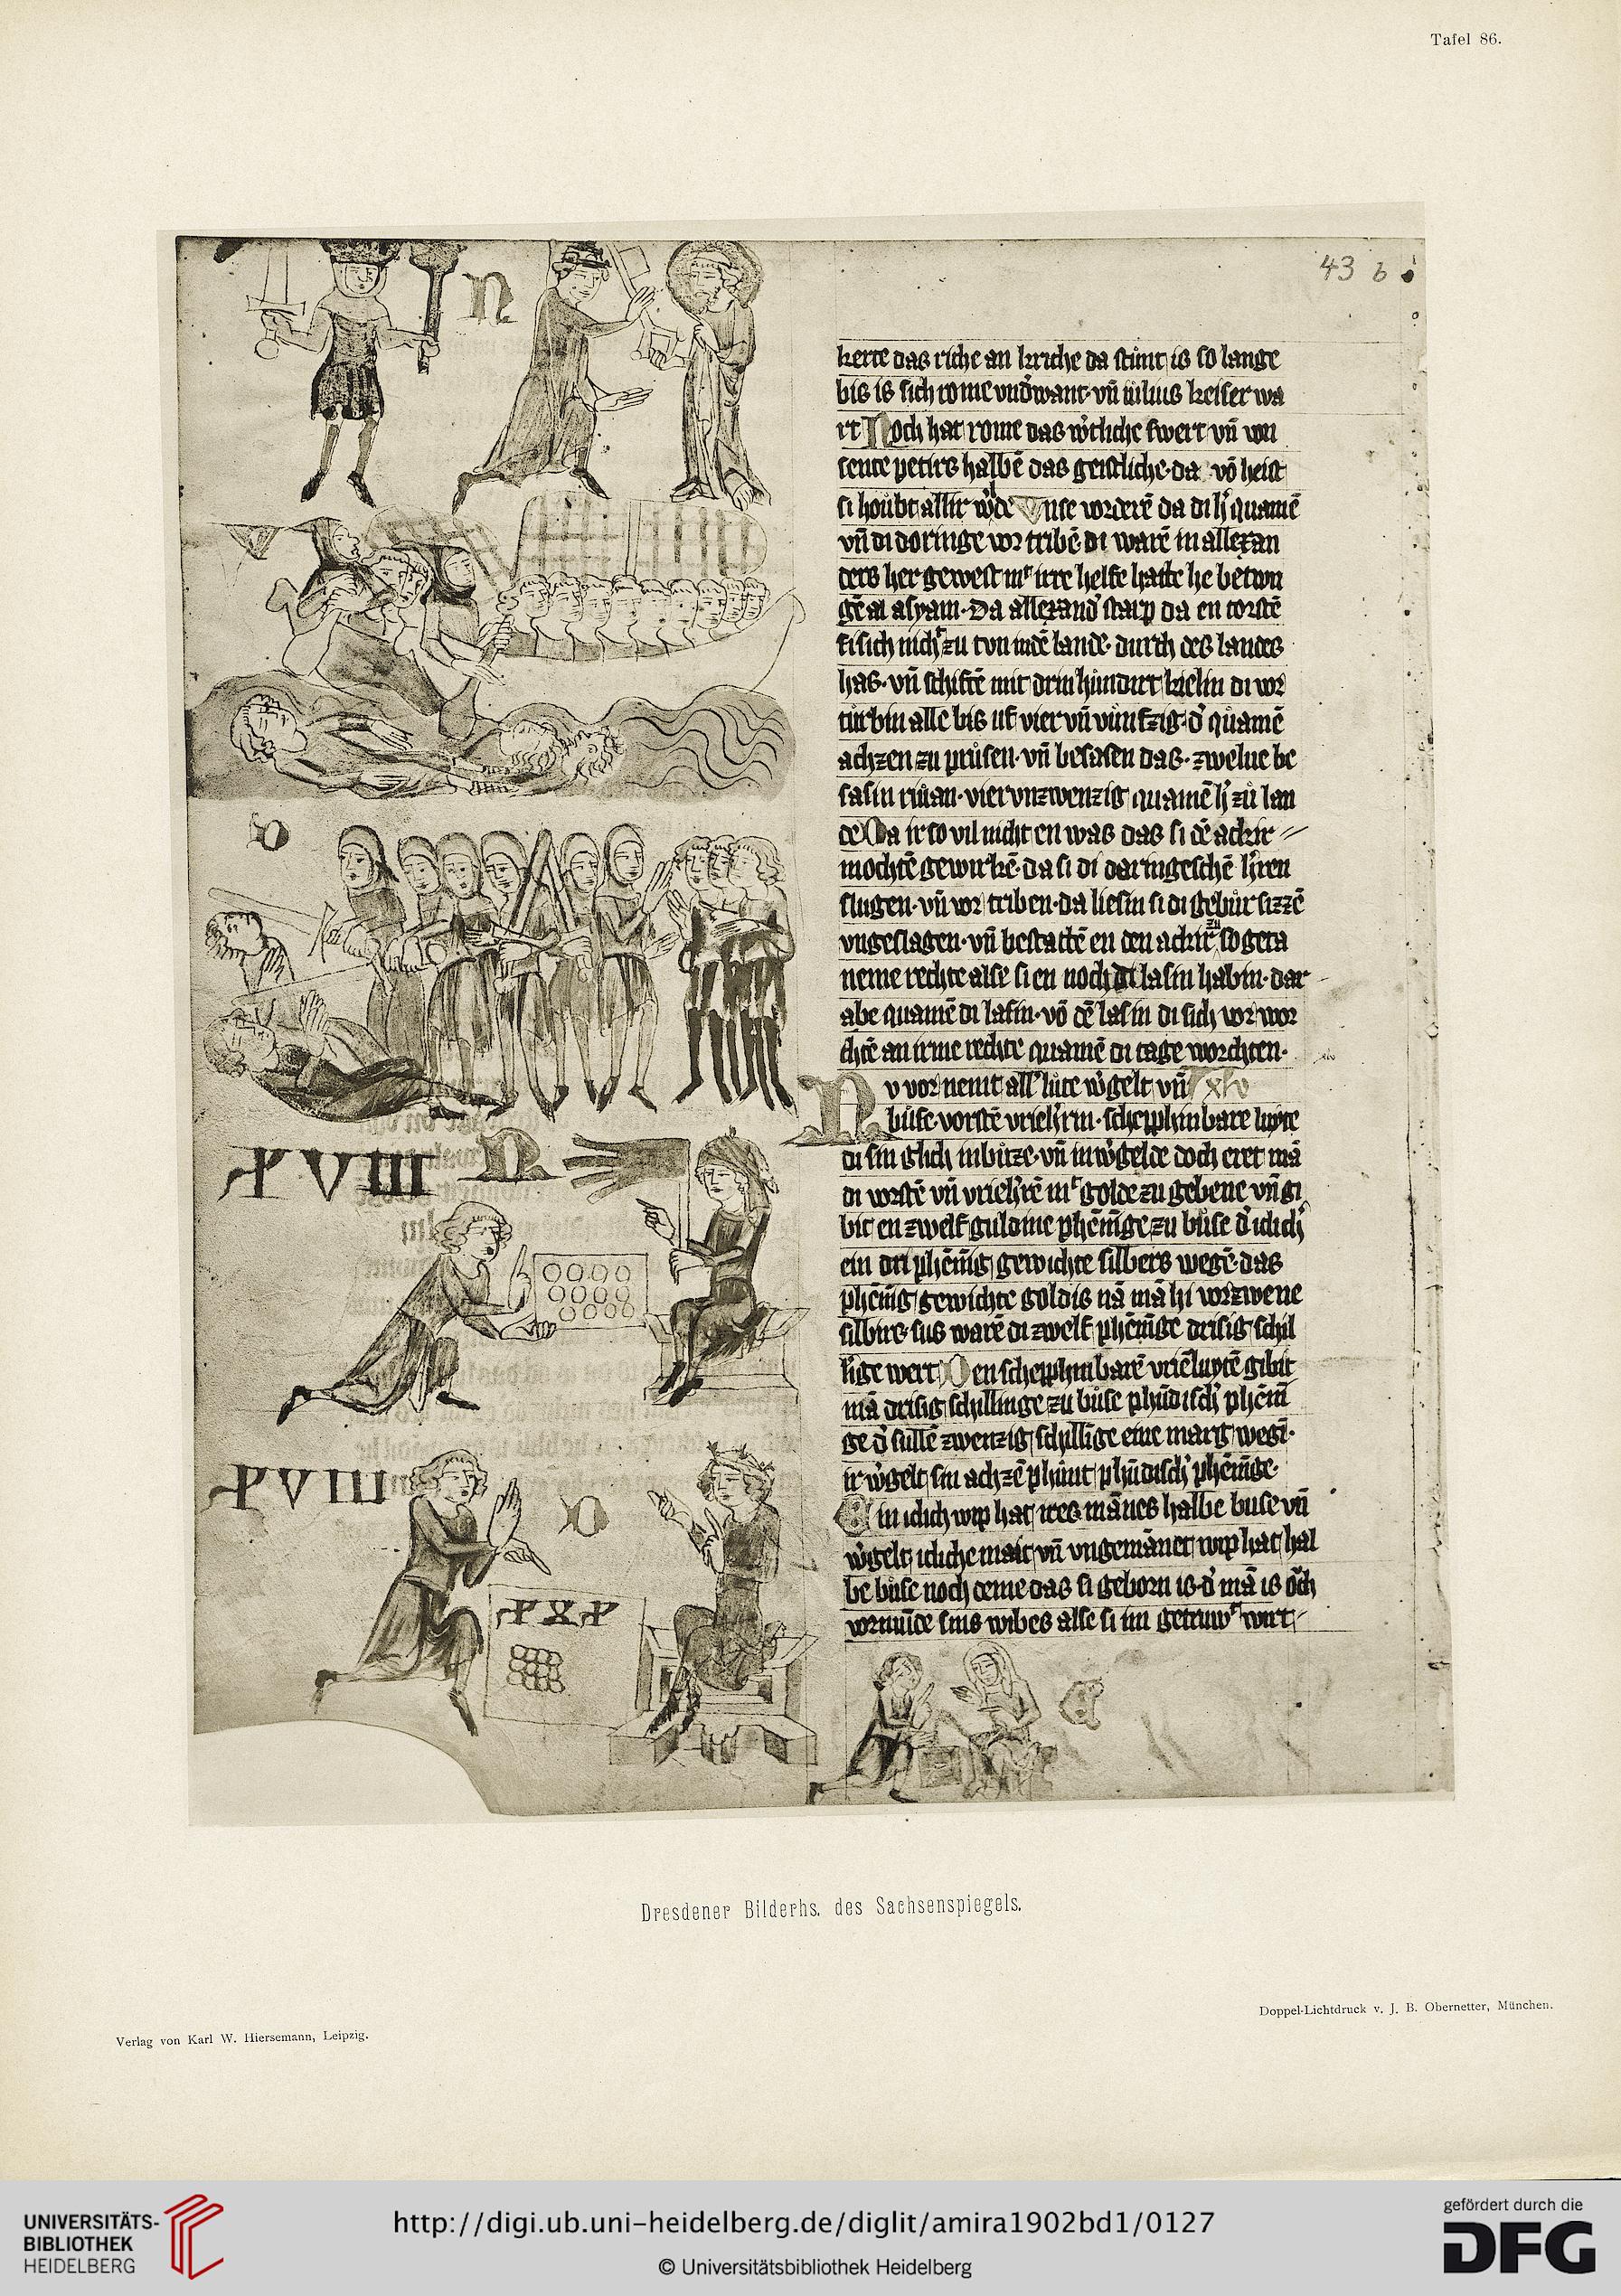 Tafel 86.
43 b
kerte das riche an kriche da stunt is so lange
bis is sich rome vnd'want· vn̄ iulius keiser wa
rt Noch hat rome das w'tliche swert vn̄ von
sente petirs halbē das geistliche· da vō heist
si houbt allir w'lde Vnse vorderē da di h' quamē
vn̄ di doringe vor tribē· di warē in allexan
ders her gewest mit irre helfe hatte he betwu
gē al asyam· Da allexand' starp da en torstē
si sich nicht zu tvn in dē lande· durch des landes
has· vn̄ schiftē mit drin hundirt kielin di vor
turbin alle bis uf vier vn̄ vunfzig· d' quamē
achzen zu prusen· vn̄ besasen das· zwelue be
sasin ruian· vier vn zwenzig quamē h' zu lan
de Da ir so vil nicht en was das si dē ackir
mochtē gewirkē· da si di doringeschē h'ren
slugen· vn̄ vor triben· da liesin si di gebur sizzē
vngeslagen· vn̄ bestattē en den ackir zu so geta
neme rechte alse si en noch di lasin habin· dar
abe quamē di lasin· vō dē lasin di sich vor wor
chtē an irme rechte quamē di tage worchten·
N
v vor nemt all' lute w'gelt vn̄ xlv
buse· vorstē vrieh'rin· schepphinbare luyte
di sin glich in buze· vn̄ in w'gelde doch eret mā
di vorstē vn̄ vrieh'rē mit golde zu gebene vn̄ gi
bit en zwelf guldine phēnige zu buse d' iclich
ein dri phēnig gewichte silbers wegē· das
phēnig gewichte goldis nā mā hi vor zwene
silbirs· sus warē di zwelf phēnige drisig schil
lige wert Den schepphinbarē vriē luytē gibit
mā drisig schyllinge zu buse phūdisch' phēni
ge d' sullē zwenzig schyllīge eine marg wegī·
ir w'gelt sin achzē phunt phūdisch' phēnige·
Ein iclich wip hat ires mānes halbe buse vn̄
w'gelt iclich mait vn̄ vngemānet wip hat hal
be buse noch deme das si geborn is· d' mā is och
vormūde sins wibes alse si im getruw't wirt
N
D
XVIII
N
XVIII
D
XXX
Dresdener Bilderhs. des Sachsenspiegels.
Doppel-Lichtdruck v. J. B. Obernetter, München.
Verlag von Karl W. Hiersemann, Leipzig.
UNIVERSITÄTS-
BIBLIOTHEK
HEIDELBERG
http://digi.ub.uni-heidelberg.de/diglit/amira1902bd1/0127
© Universitätsbibliothek Heidelberg
gefördert durch die
DFG